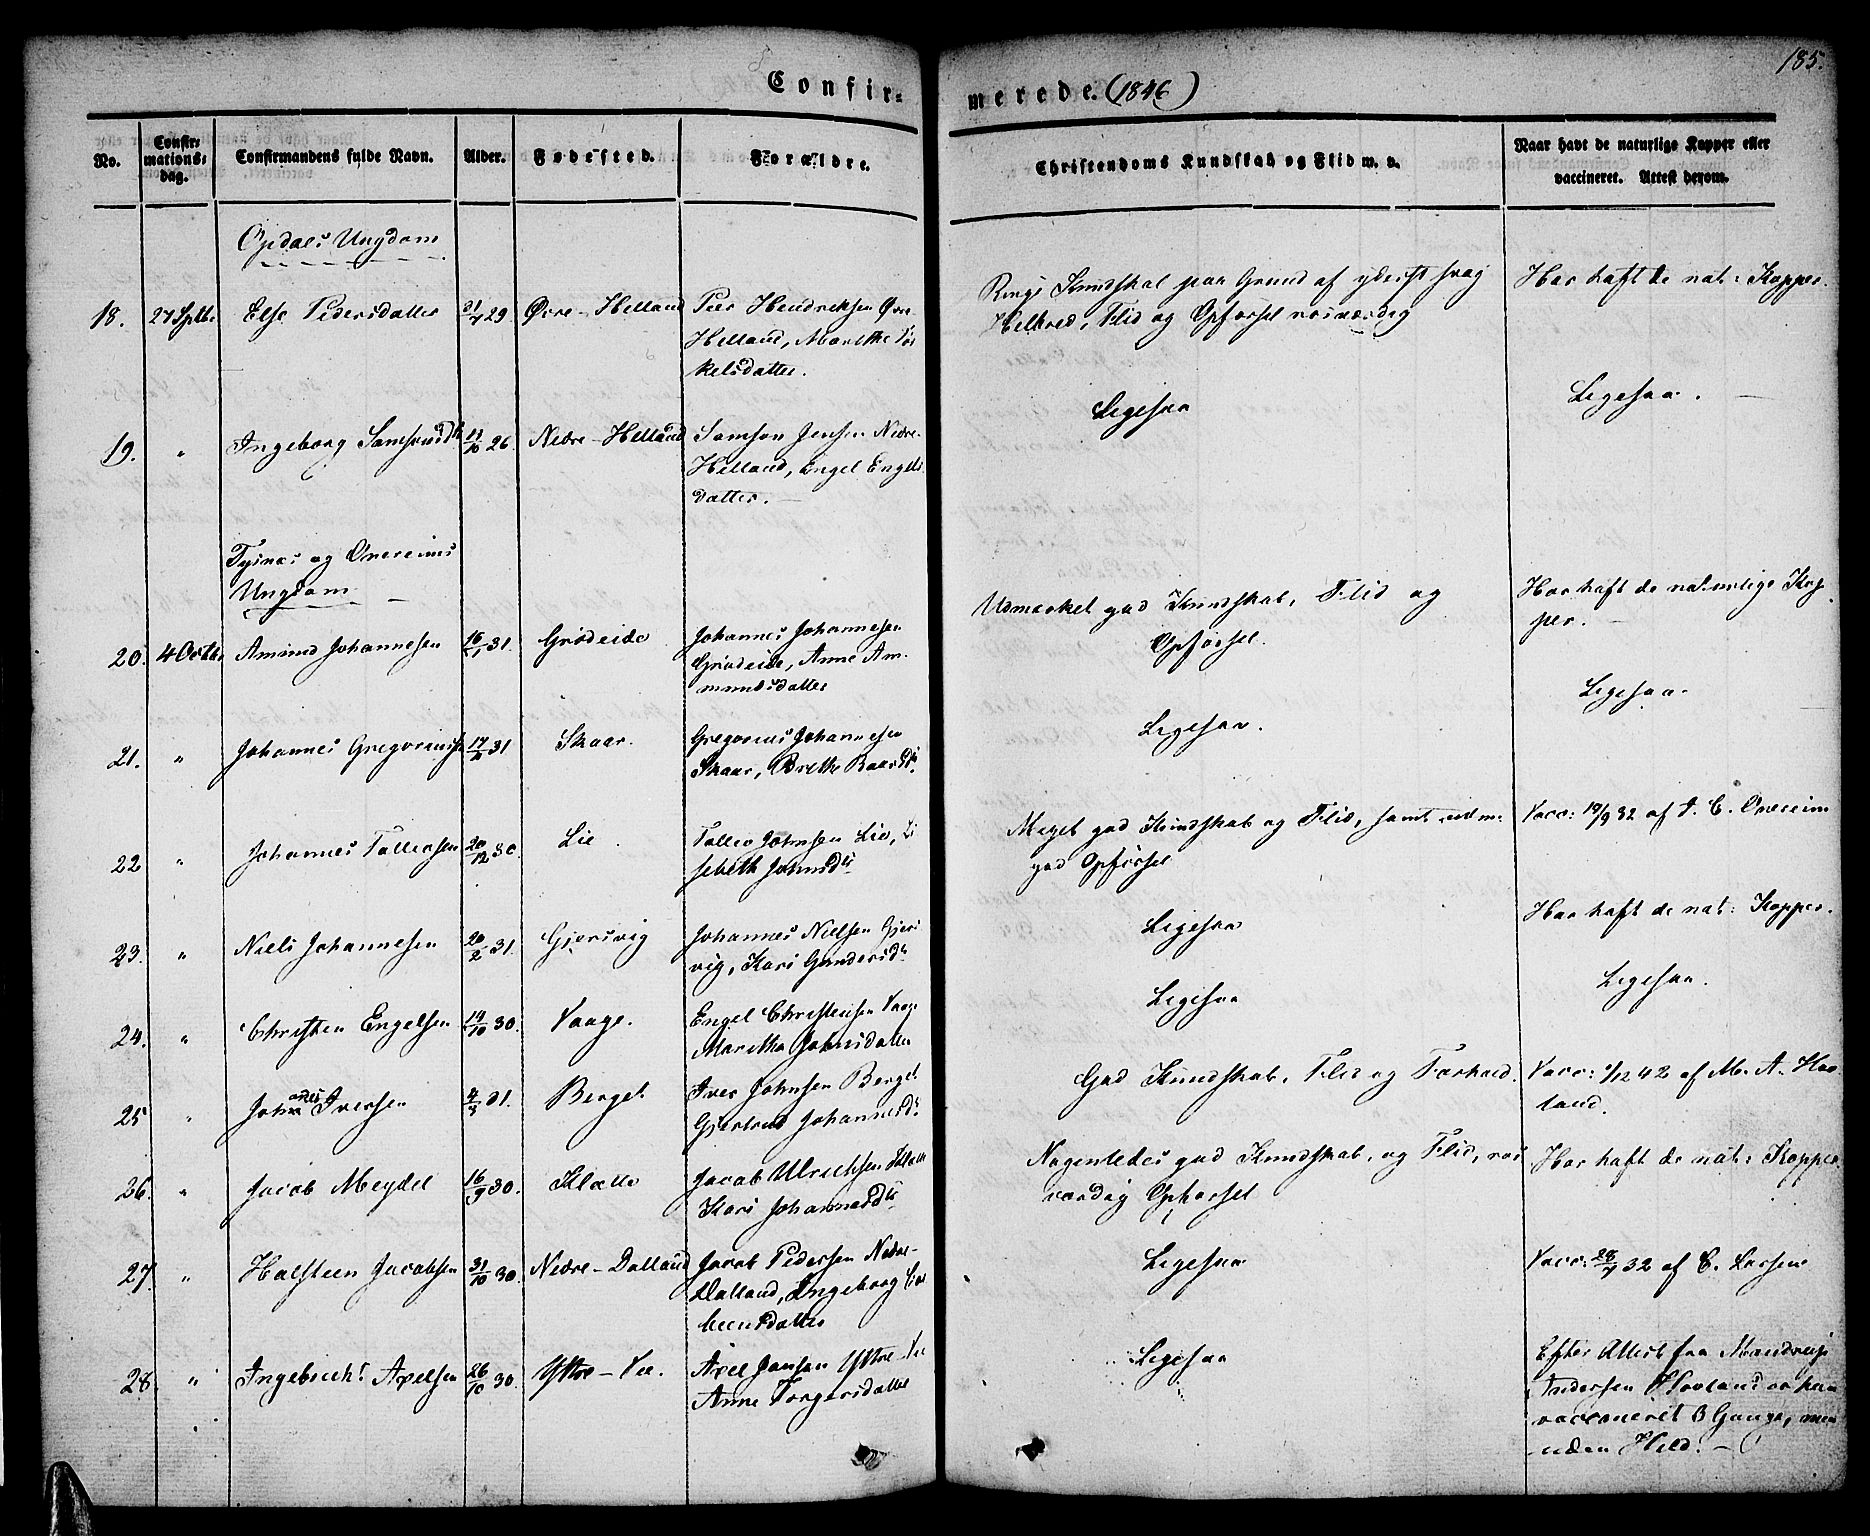 185.
Confir-
merede. (1846)
No.
Confir-
mations-
dag.
Confirmandens fulde Navn.
Alder.
Fødested.
Forældre.
Christendoms Kundskab og Flid m. v.
Naar havt de naturlige Kopper eller
vaccineret. Attest derom.
Opdals Ungdom
18. 27 Septbr Else Pedersdatter 31/7 29 Øvre-Helland Peer Hendriksen Øvre-
Helland, Marethe
kelsdatter.
Ringe Kundskab paa Grund af yderst svag
Helbred, Flid og Opførsel rosværdig
Har haft de nat: Kopper.
19. " Ingeborg Samsonsdtr 26 Nedre-Helland Samson Jensen Nedre-
Helland, Engel Engels
datter.
Ligesaa
Ligesaa.
Tysnes og Onereims
Ungdom
20. 4 Octbr Amund Johannesen 16/1 31. Grødeide Johannes Johannesen
Grødeide, Anne Am-
mundsdatter
Udmærket god Kundskab, Flid og
Opførsel.
Har haft de naturlige Kop
per.
21. " Johannes Gregoriuss 31. Skaar. Gregorius Johannesen
Skaar, Brethe Baardsdtr.
Ligesaa.
Ligesaa.
22 " Johannes Tollersen 20/12 30. Lie. Tolles Johnsen Lie, Li
sebeth Johnsdtr
Meget god Kundskab og Flid, samt udm:
god Opførsel
Vacc: 19/9 32 af A. C. Onereim
23. " Niels Johannesen 20/2 31. Gjersvig Johannes Nielsen Gjers
vig, Kari Gundersdr
Ligesaa
Har haft de nat: Kopper.
24. " Christen Engelsen 14/10 30. Vaage. Engel Christensen Vaag
Maritha Johnsdatter
Ligesaa
Ligesaa.
25 " Johannes Iversen 4/3 31. Berget. Iver Johnsen Berget
Gjertrud Johannesdr.
God Kundskab, Flid og Forhold.
Vacc: 42 af M. A. Hov
land.
26. " Jacob Meydel 16/9 30. Klætte Jacob Ulrichsen Klætte
Kari Johannesdtr
Nogenledes god Kundskab, og Flid, ros
værdig Ophørsel
Har haft de nat: Kopper.
27. " Halsteen Jacobsen 31/10 30. Nedre-Dalland Jacob Pedersen Nedre-
Dalland, Ingeborg
beensdatter
Ligesaa
Vacc: 28/7 32 af C. Larsen
28. " Ingebricht Axelsen 26/10 30. Yttre-Vee. Axel Jansen Yttre-Vee
Anne Torgersdatter
Ligesaa
Efter Attest fra
Andersen Hovland er han
vaccineret 3 Gange, men
uden Held. -